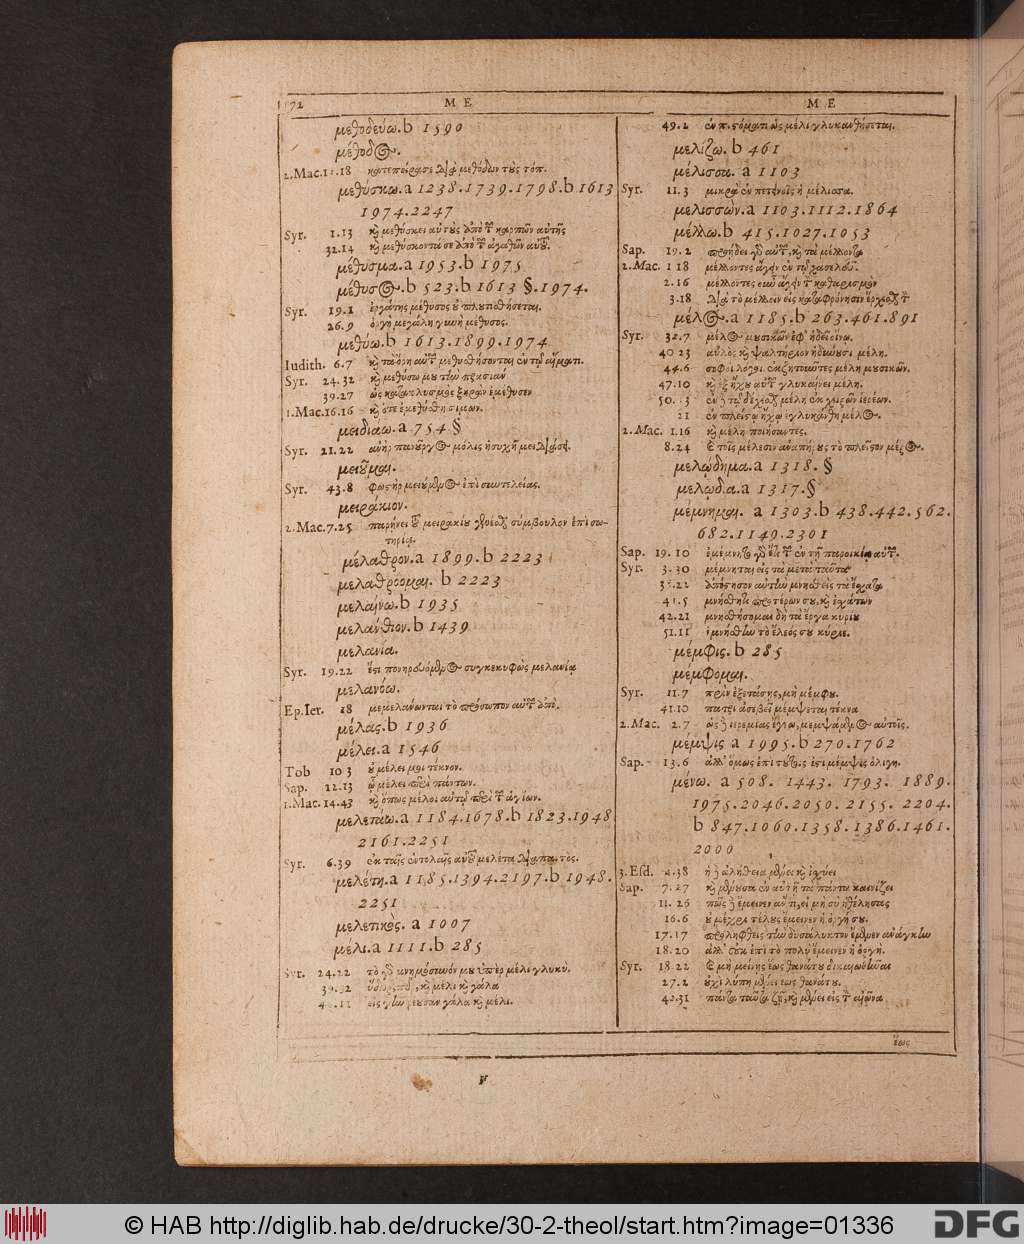 72
M E
μεθοδεύω. b 1590
μέθοδος.
2.Mac. 18 κατεπείρασε διὰ μεθόδων τοὺς τόπ.
μεθύσκω. a 1238. 1739. 1798. b 1613
1974. 2247
Syr. 1.13 καὶ μεθύσκει αὐτοὺς ἀπὸ τῶν καρπῶν αὐτῆς
32.14 καὶ μεθύσκοντά σε ἀπὸ τῶν ἀγαθῶν αὐτοῦ.
μέθυσμα. a 1953. b 1975
μέθυσος. b 523. b 1613 §. 1974.
Syr. 19.1 ἐργάτης μέθυσος οὐ πλουτισθήσεται.
26.9 ὀργὴ μεγάλη γυνὴ μέθυσος.
μεθύω. b 1613. 1899. 1974
Iudith. 6.7 καὶ τὰ ὄρη αὐτῶν μεθυσθήσονται ἐν τῷ αἵματι.
Syr. 24.32 καὶ μεθύσω μου τὴν πρασιάν
39.27 ὡς κατακλυσμὸς ξηρὰν ἐμέθυσεν
1.Mac. 16.16 καὶ ὅτε ἐμεθύσθη σίμων.
μειδιάω. a 754 §
Syr. 21.22 ἀνὴρ πανοῦργος μόλις ἡσυχῆ μειδιάσει.
μειοῦμαι.
Syr. 43.8 φωστὴρ μειούμενος ἐπὶ συντελείας.
μειράκιον.
2.Mac. 7.25 παρῄνει τοῦ μειρακίου γενέσθαι σύμβουλον ἐπὶ σω-
τηρίᾳ.
μέλαθρον. a 1899. b 2223
μελαθρόομαι. b 2223
μελαίνω. b 1935
μελάνθιον. b 1439
μελανία.
Syr. 19.22 ἔστι πονηρευόμενος συγκεκυφὼς μελανίᾳ
μελανόω.
Ep.Ier. 18 μεμελάνωνται τὸ πρόσωπον αὐτῶν ἀπὸ.
μέλας. b 1936
μέλει. a 1546
Tob 10 3 οὐ μέλει μοι τέκνον.
Sap. 12.13 ᾧ μέλει περὶ πάντων.
1.Mac. 14.43 καὶ ὅπως μέλοι αὐτῷ περὶ τῶν ἁγίων.
μελετάω. a 1184. 1678. b 1823. 1948
2161. 2251
Syr. 6.39 ἐν ταῖς ἐντολαῖς αὐτοῦ μελέτα διαπαντός.
μελέτη. a 1185. 1394. 2197. b 1948.
2251
μελετητικὸς. a 1007
μέλι. a 1111. b 285
Syr. 24.22 τὸ γὰρ μνημόσυνόν μου ὑπὲρ μέλι γλυκύ.
καὶ μέλι καὶ γάλα
εἰς γῆν ῥέουσαν γάλα καὶ μέλι.
M E
49.2 ἐν π. στόματι ὡς μέλι γλυκανθήσεται.
μελίζω. b 461
μέλισσα. a 1103
Syr. 11.3 μικρὰ ἐν πετεινοῖς ἡ μέλισσα.
μελισσών. a 1103. 1112. 1864
μέλλω. b 415. 1027. 1053
Sap. 19.2 προῄδει γὰρ αὐτῶν, καὶ τὰ μέλλοντα
2.Mac. 1 18 μέλλοντες ἄγειν ἐν τῷ χασελεῦ.
2.16 μέλλοντες οὖν ἄγειν τὸν καθαρισμὸν
3.18 διὰ τὸ μέλλειν εἰς καταφρόνησιν ἔρχεσθαι τὸν
μέλος. a 1185. b 263. 461. 891
Syr. 32.7 μέλος μουσικῶν ἐφ' ἡδεῖ οἴνῳ.
40 23 αὐλὸς καὶ ψαλτήριον ἡδύνουσι μέλη.
44.6 σοφοὶ λόγοι ἐκζητοῦντες μέλη μουσικῶν.
47.10 καὶ ἐξ ἤχου αὐτῶν γλυκαίνει μέλη.
50. 3 ἐν τῷ δέχεσθαι μέλη ἐκ χειρῶν ἱερέων.
21 ἐν πλείστῳ ἤχῳ ἐγλυκάνθη μέλος.
2.Mac. 1.16 καὶ μέλη ποιήσαντες.
8.24 καὶ τοῖς μέλεσιν ἀναπήρους τὸ πλεῖστον μέρος.
μελῴδημα. a 1318. §
μελῳδία. a 1317. §
μέμνημαι. a 1303. b 438. 442. 562.
682. 1149. 2301
Sap. 19.10 ἐμέμνηντο γὰρ ἔτι τῶν ἐν τῇ παροικίᾳ αὐτῶν.
Syr. 3.30 μέμνηται εἰς τὰ μετὰ ταῦτα
38.22 ἀπόστησον αὐτὴν μνησθεὶς τὰ ἔσχατα
41.5 μνήσθητι προτέρων σου, καὶ ἐσχάτων
42.21 μνησθήσομαι δὴ τὰ ἔργα κυρίου
51.11 ἐμνήσθην τὸ ἔλεός σου κύριε.
μέμφις. b 285
μέμφομαι.
Syr. 11.7 πρὶν ἐξετάσῃς, μὴ μέμψῃ.
41.10 πατρὶ ἀσεβεῖ μέμψεται τέκνα
2.Mac. 2.7 ὡς δὲ ἱερεμίας ἔγνω, μεμψάμενος αὐτοῖς.
μέμψις a 1995. b 270. 1762
Sap. 13.6 ἀλλ' ὅμως ἐπὶ τούτοις ἐστὶ μέμψις ὀλίγη.
μένω. a 508. 1443. 1793. 1889.
1975. 2046. 2050. 2155. 2204.
b 847. 1060. 1358. 1386. 1461.
2000
3.Esd. 4.38 ἡ δὲ ἀλήθεια μένει καὶ ἰσχύει
Sap. 7.27 καὶ μένουσα ἐν αὐτῇ τὰ πάντα καινίζει
11.26 πῶς δὲ ἔμεινεν ἄν τι, εἰ μὴ σὺ ἠθέλησας
16.6 οὐ μέχρι τέλους ἔμεινεν ἡ ὀργή σου.
17.17 προληφθεὶς τὴν δυσάλυκτον ἔμενεν ἀνάγκην
18.20 ἀλλ' οὐκ ἐπὶ τὸ πολὺ ἔμεινεν ἡ ὀργή.
Syr. 18.22 καὶ μὴ μείνῃς ἕως θανάτου δικαιωθῆναι
27.2 οὐχὶ λύπη μένει ἕως θανάτου.
42.31 πάντα ταῦτα ζῇ, καὶ μένει εἰς τὸν αἰῶνα
ἕως
© HAB http://diglib.hab.de/drucke/30-2-theol/start.htm?image=01336
DFG